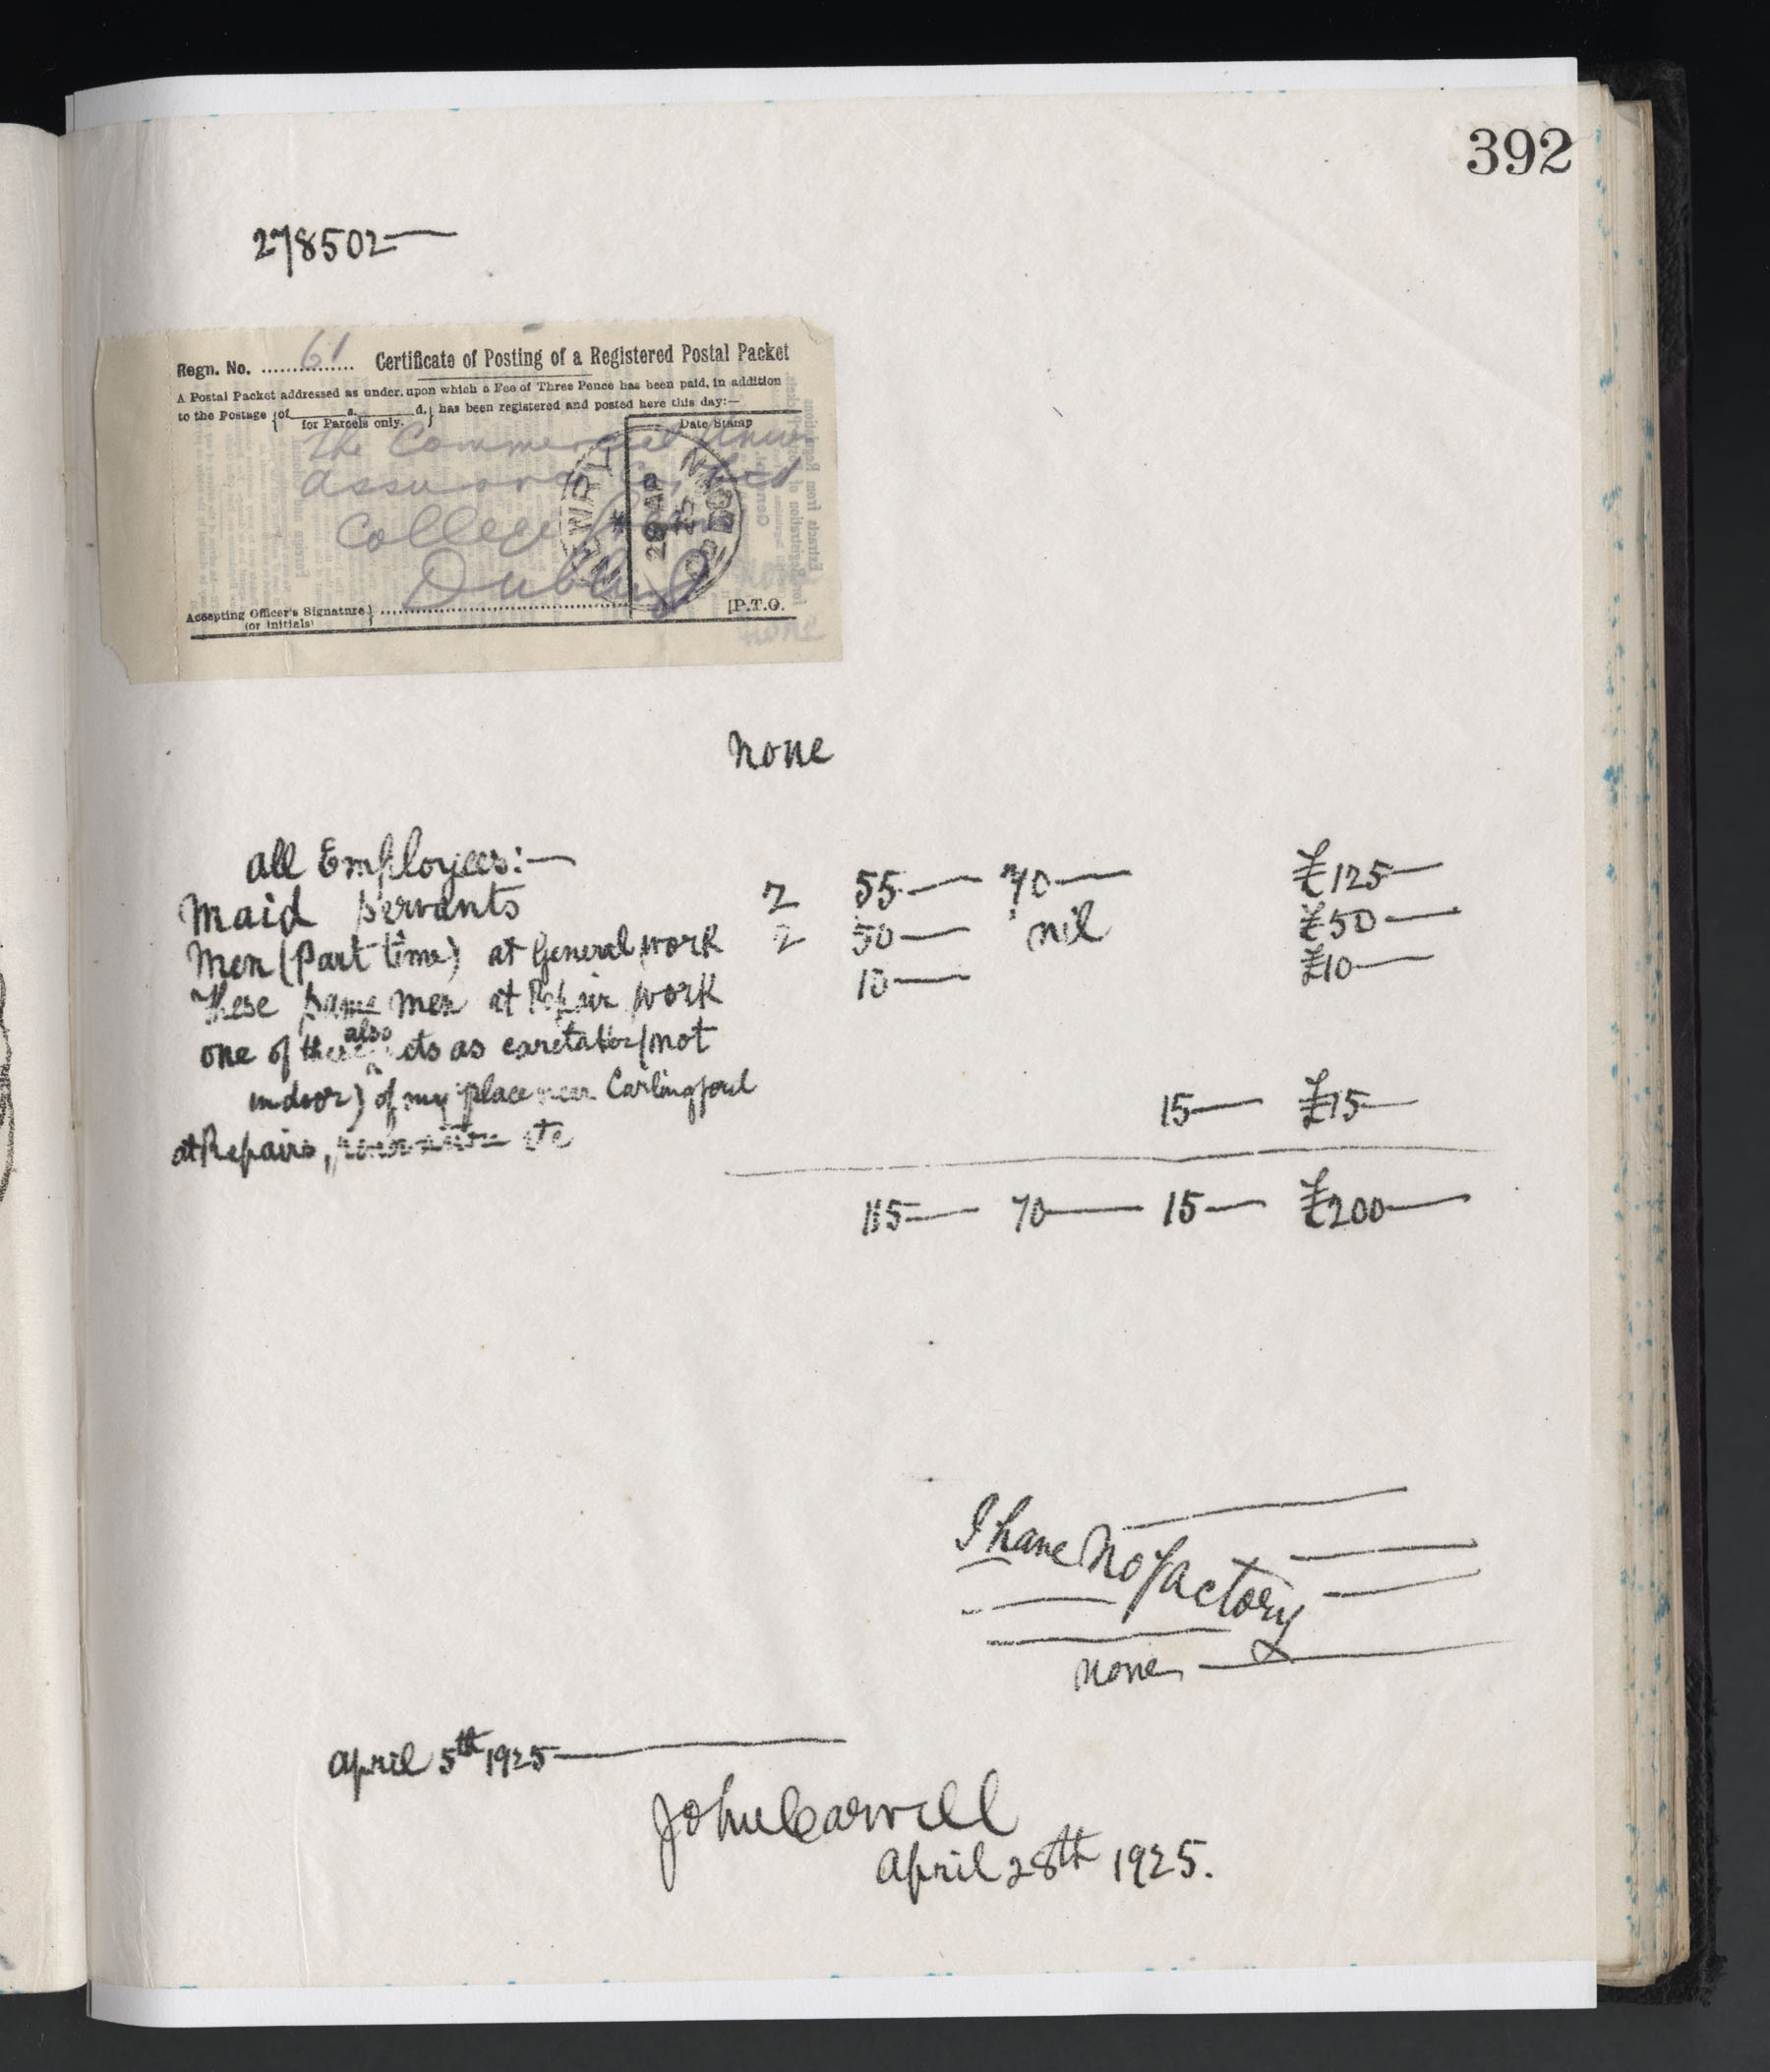 392
278502—
Regn. No. 61 Certificate of Posting of a Registered Postal Packet
A Postal Packet addressed as under, upon which a Fee of Three Pence has been paid, in addition
to the Postage {of ____ s. ____ d. for Parcels only.} has been registered and posted here this day:—
Date Stamp
The Commercial Union
Assurance Co, Ltd
College
Dublin
NEWRY
28 AP
25
CO. DOWN
Accepting Officer's Signature}
(or initials)
[P.T.O.
none
all Employees:—
Maid Servants 2 55— 70— £125—
Men (Part time) at General work 2 50— nil £50—
These same men at Repair work 10— £10—
one of these also acts as caretaker (not
indoor) of my place near Carlingford 15— £15—
at Repairs, renovation etc
115— 70— 15— £200—
I have No factory
none
April 5th 1925—
John Carvill
April 28th 1925.